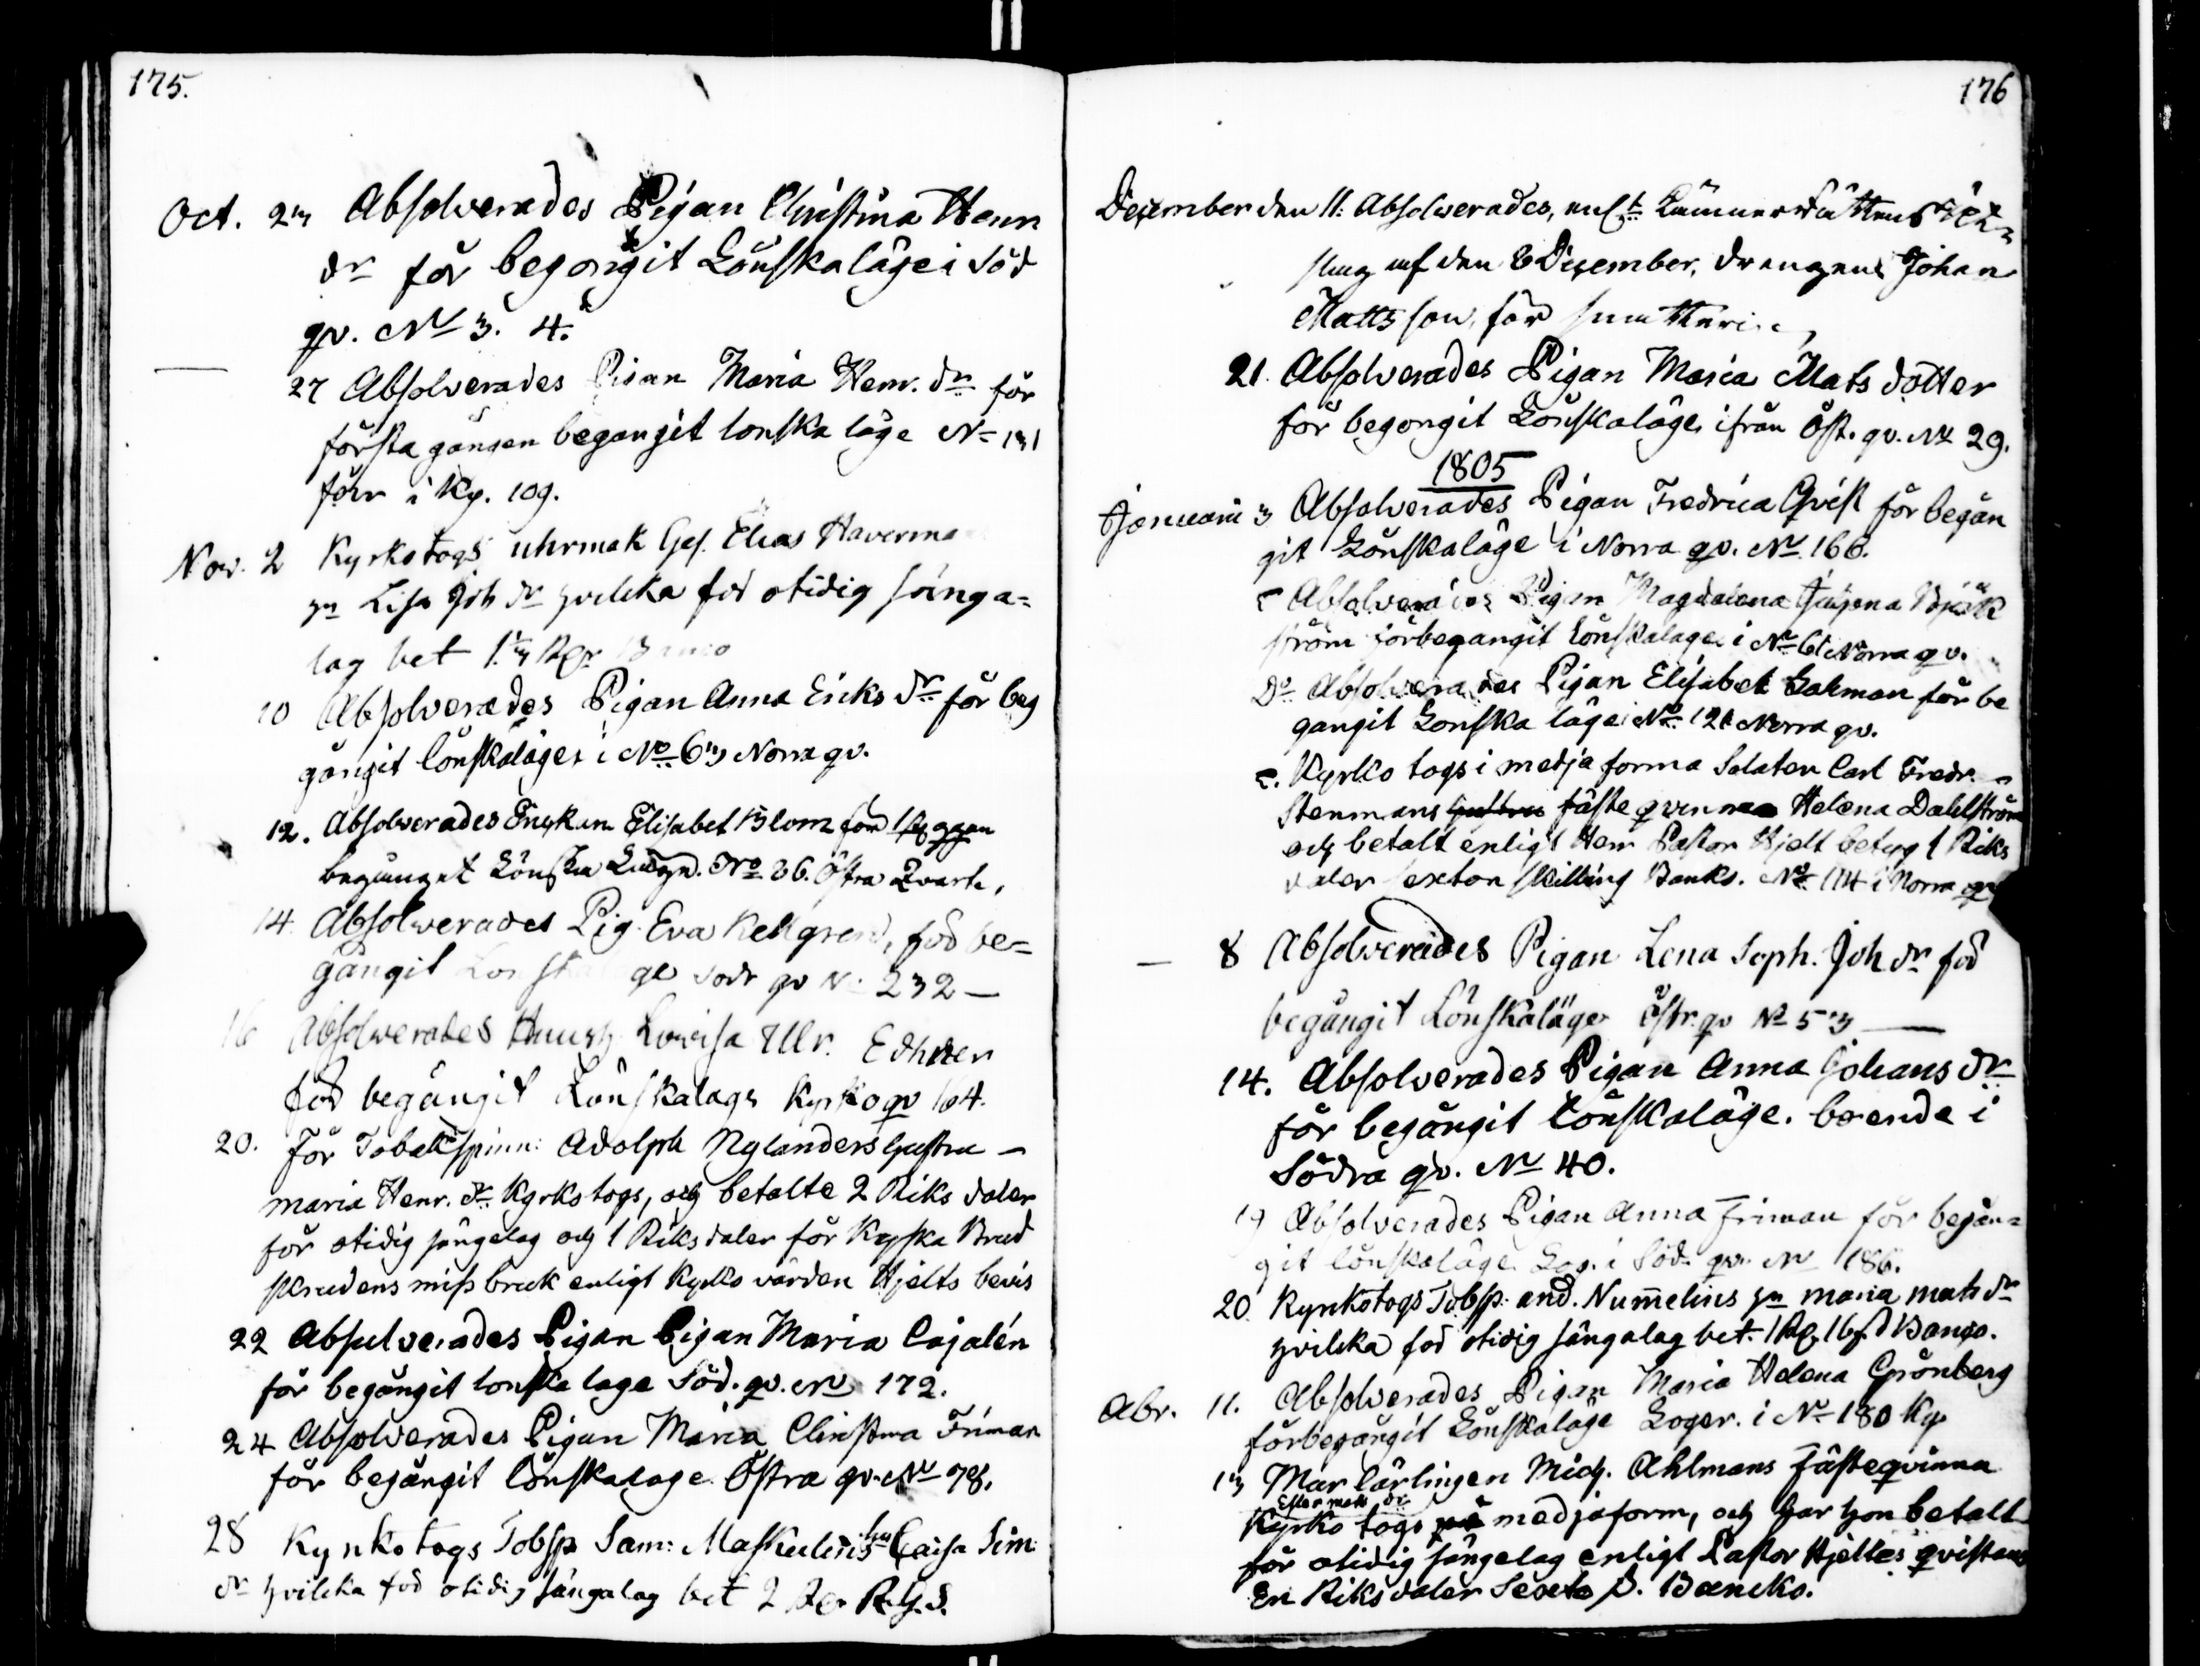 175.
Oct. 23 Absolverades Pigan Christina Henr
dr för begongit Lönskaläge i Söd
qv. No 3. 4.
27 Absolverades Pigan Maria Henr. dr för
första gången begangit lönska läge No 131
förr i Kq. 109.
Nov. 2 Kyrkotogs uhrmak Ges. Elias Haverma
hu Lisa Joh dr hvilcka för otidig sänga=
lag bet 1. Rdr Banco
10 Absolverades Pigan Anna Ericks dr för beg
gångit lönskaläger i No 63 Norra qv.
12. Absolverades Enckan Elisabet Blom för 1sta ggen
begånget Lönska Läge. No 26. Östra Qvart.
14. Absolverades Pig. Eva Kellgren, för be=
gångit Lönskaläge Södr qv No 232 —
16 Absolverades Hush Lovisa Ullr. Edhder
för begångit Lönskalage Kyrko qv 164.
20. För Tobakspinn: Adolph Nylanders hustru —
maria Henr. dr. Kyrkotogs, och betalte 2 Riksdaler
för otidig sängelag och 1 Riksdaler för Kyska Brud
skrudens missbruk enligt Kyrko värden Hjelts bevis
22 Absulverades Pigan Pigan Maria Cajalén
för begångit lonska lage Söd. qv. No 172.
24 Absolverades Pigan Maria Christina Friman
för begångit lönskalage Östra qv. No 78.
28 Kyrkotogs Tobsp Sam: Maskulins hu Caisa Sim:
dr hvilcka för otidig sängalag bet 2 Rdr R.G.S.
176
December den 11. Absolverades, enl.t Kämners Rättens
af den 6 December, drengen Johan
Mattsson, för
21. Absolverades Pigan Maria Mats dotter
för begongit Lönskaläge, ifrån Öst. qv. No 29.
1805
Januarii 3 Absolverades Pigan Fredrica Qvist för begån
git Lönskaläge i Norra qv. No 166.
Absolverades Pigan Magdalena Björk
ström förbegangit Lönskalage i No 61 Norra qv.
Do Absolverades Pigan Elisabet Gahman för be
gangit Lonska läge No 121 Norra qv.
Kyrko togs i medja forma Salaten Carl Fredr. —
Stenmans hustru fäste qvinna Helena Dahlström
och betalt enligt Herr Pastor Hjelt betyg 1 Riks
daler sexton skilling Banko. No 114 i Norra qv
— 8 Absolverades Pigan Lena Soph. Joh dr för
begångit Lönskaläge Östr. qv No 53 —
14. Absolverades Pigan Anna Johans dr
för begångit Lönskaläge. boende i
Södra qv. No 40.
19 Absolverades Pigan Anna Finman för begån=
git lönskaläge Log. i Söd. qv. No 186.
20. Kyrkotogs Tobsp. And. Num̄elins hu maria mats dr
hvilcka för otidig sängalag bet. 1 Rdr. 16 s. Banco.
Abr. 11. Absolverades Pigan Maria Helena Grönberg
förbegångit Lönskaläge Loger. i No 180 Kq
13 Mar lärlingen Mich. Ahlmans fästeqvinna
Ester mats dr
Kyrko togs på medjaform, och har hon betalt
för otidig sängelag enligt Pastor Hjeltes qvistans
En Riksdaler Sexto s. Bancko.